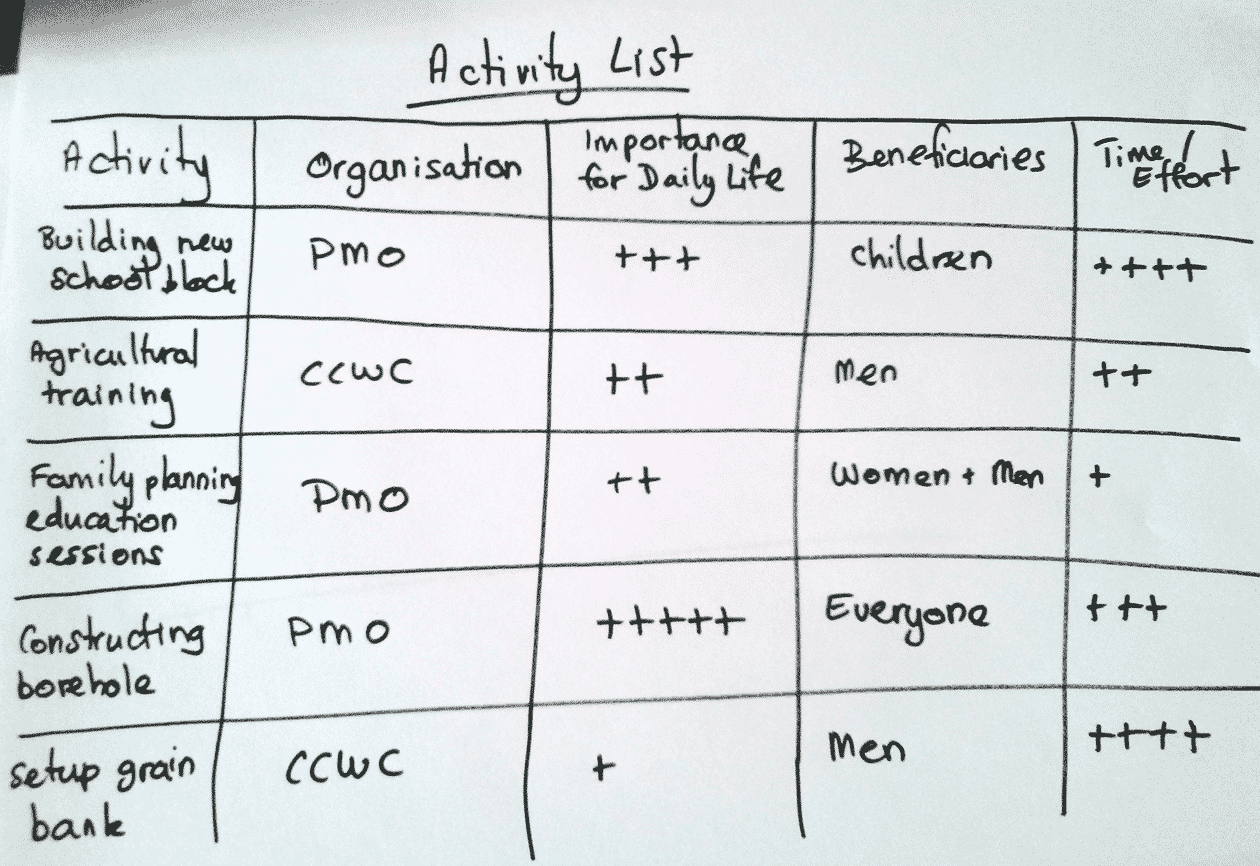 Activity List
Activity Organisation Importance for Daily Life Beneficiaries Time/Effort
Building new school block PMO +++ children ++++
Agricultural training CCWC ++ Men ++
Family planning education sessions PMO ++ Women + Men +
Constructing borehole PMO +++++ Everyone +++
Setup grain bank CCWC + Men ++++